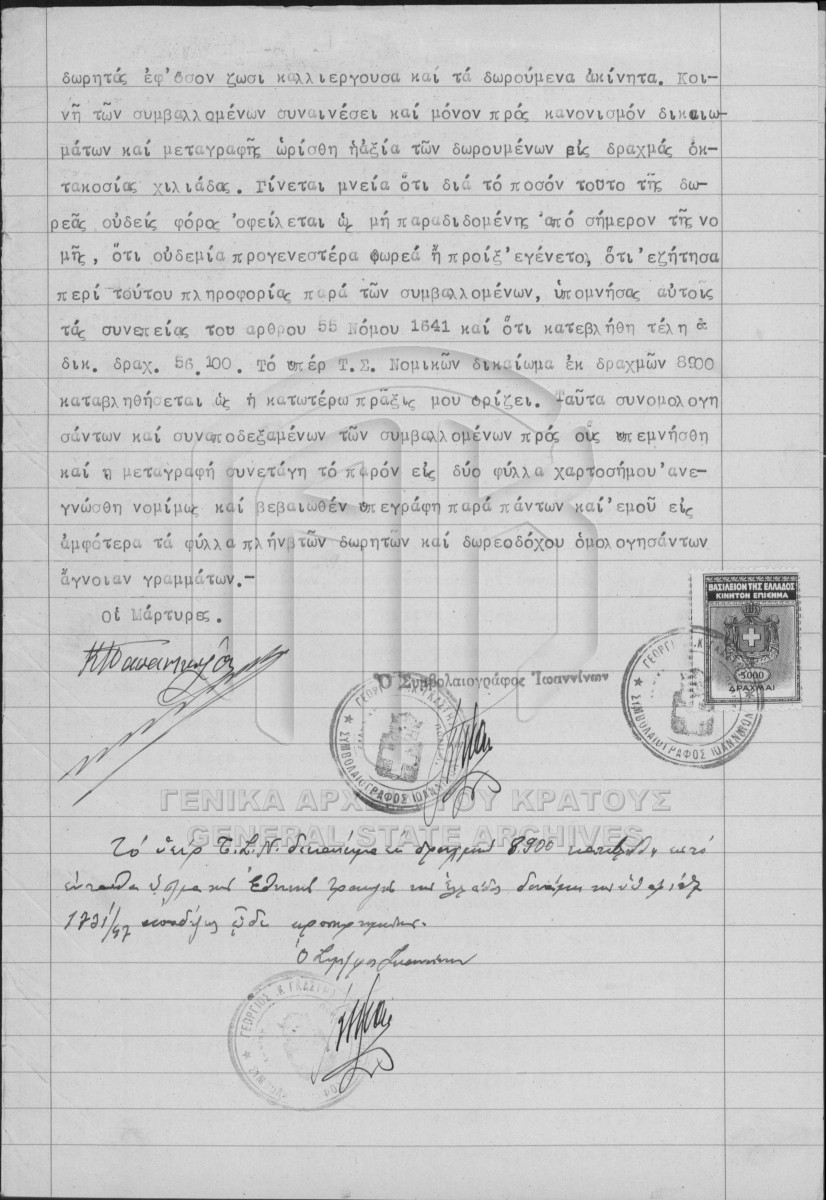 δωρητάς ἐφ'ὅσον ζωσι καλλιεργουσα καί τά δωρούμενα ἀκίνητα. Κοι-
νῇ τῶν συμβαλλομένων συναινέσει καί μόνον πρός κανονισμόν δικαιω
μάτων καί μεταγραφῆς ὡρίσθη ἡἀξία τῶν δωρουμένων εἰς δραχμάς ὀκ-
τακοσίας χιλιάδας. Γίνεται μνεία ὅτι διά τό ποσόν τοῦτο τῆς δω-
ρεᾶς οὐδείς φόρος ὀφείλεται ὡς μή παραδιδομένης ἀπό σήμερον τῆς νο
μῆς, ὅτι οὐδεμία προγενεστέρα δωρεά ἤ προίξ ἐγένετο, ὅτι ἐζήτησα
περί τούτου πληροφορίας παρά τῶν συμβαλλομένων, ὑπομνήσας αὐτοῖς
τάς συνεπείας του αρθρου 55 Νόμου 1641 καί ὅτι κατεβλήθη τέλη
δικ. δραχ. 56.100. Τό υπέρ Τ.Σ. Νομικῶν δικαίωμα ἐκ δραχμῶν 8900
καταβληθήσεται ὡς ἡ κατωτέρω πρᾶξις μου ορίζει. Ταῦτα συνομολογη
σάντων καί συναποδεξαμένων τῶν συμβαλλομένων πρός οὕς υπεμνήσθη
καί η μεταγραφή συνετάγη τό παρόν εἰς δύο φύλλα χαρτοσήμου ἀνε-
γνώσθη νομίμως καί βεβαιωθέν υπεγράφη παρά πάντων καί ἐμοῦ εἰς
ἀμφότερα τά φύλλα πλήν τῶν δωρητῶν καί δωρεοδόχου ὁμολογησάντων
ἄγνοιαν γραμμάτων.-
Οἱ Μάρτυρες.
ΒΑΣΙΛΕΙΟΝ ΤΗΣ ΕΛΛΑΔΟΣ
ΚΙΝΗΤΟΝ ΕΠΙΣΗΜΑ
5000
ΔΡΑΧΜΑΙ
Ὁ Συμβολαιογράφος Ἰωαννίνων
ΣΥΜΒΟΛΑΙΟΓΡΑΦΟΣ ΙΩΑΝΝΙΝΩΝ
ΓΕΝΙΚΑ ΑΡΧΕΙΑ ΤΟΥ ΚΡΑΤΟΥΣ
GENERAL STATE ARCHIVES
Τό ὑπέρ Τ.Σ.Ν. δικαίωμα ἐκ δραχμῶν 8.900
Ἐθνικῆς Τραπέζης τῆς Ἑλλάδος
1731/47 ὧδε
ΓΕΩΡΓΙΟΣ Κ